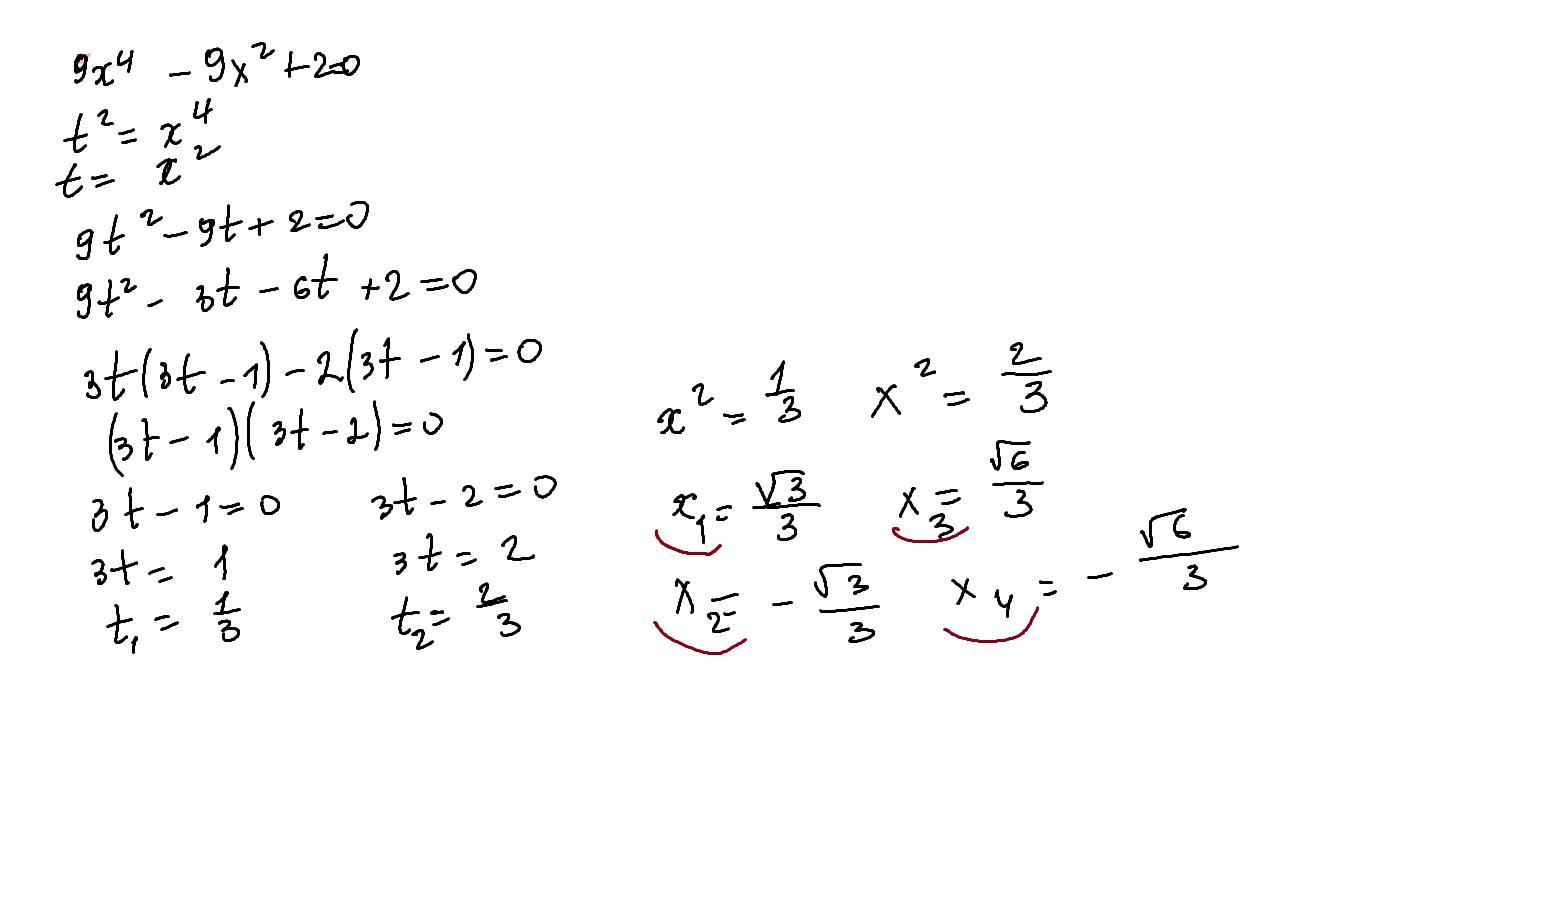 9x⁴ - 9x² + 2=0
t² = x⁴
t = x²
9t² - 9t + 2 = 0
9t² - 3t - 6t + 2 = 0
3t(3t - 1) - 2(3t - 1) = 0
(3t - 1)(3t - 2) = 0
3t - 1 = 0 3t - 2 = 0
3t = 1 3t = 2
t₁ = 1/3 t₂ = 2/3
x² = 1/3 x² = 2/3
x₁ = √3/3 x₃ = √6/3
x₂ = - √3/3 x₄ = - √6/3